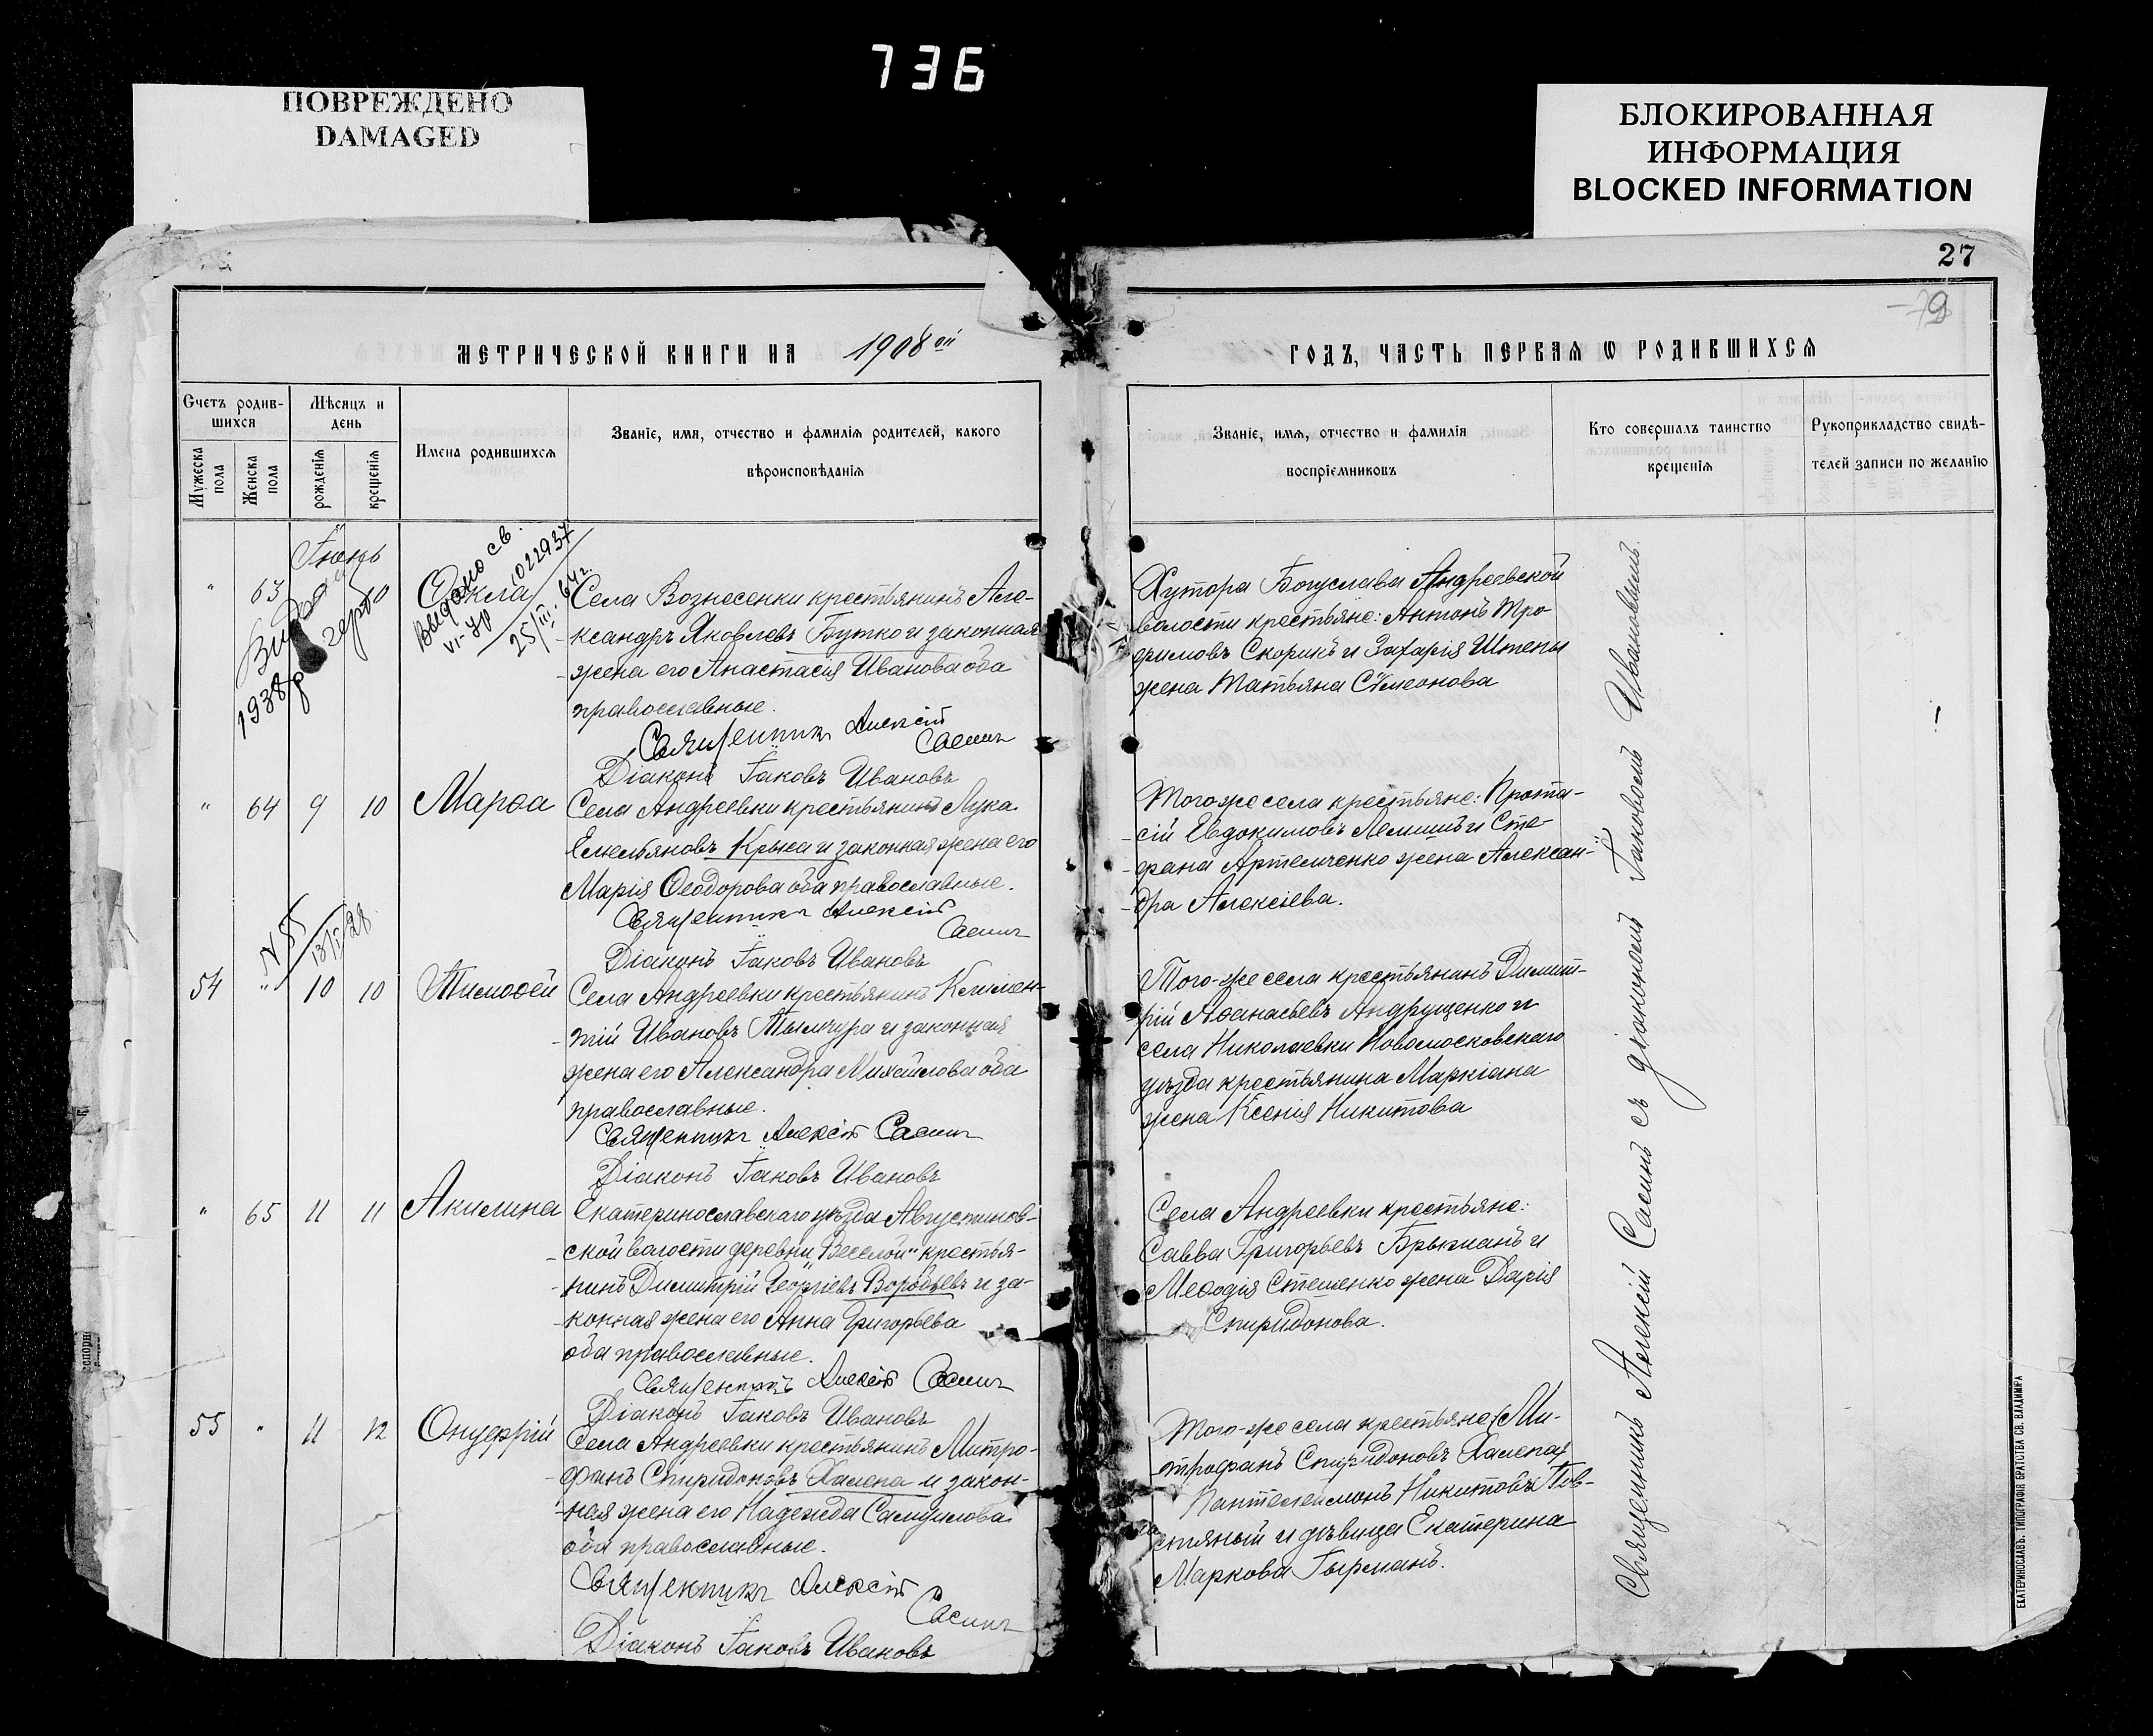 736
ПОВРЕЖДЕНО
DAMAGED
БЛОКИРОВАННАЯ
ИНФОРМАЦИЯ
BLOCKED INFORMATION
27
МЕТРИЧЕСКОЙ КНИГИ НА 1908 ой
Счетъ родив-
шихся
Мѣсяцъ и
день
Имена родившихся
Званіе, имя, отчество и фамилія родителей, какого
вѣроисповѣданія
Мужеска
пола
Женска
пола
рожденія
крещенія
Іюнь
" 63 10 Ѳекла
1938 р
Выдано св.
VI-ЯР 1022937
25/III-64г.
Села Вознесенки крестьянинъ Але-
ксандръ Яковлевъ Бутко и законная
жена его Анастасія Иванова оба
православные.
Священникъ Алексій
Сасинъ
Діаконъ Іаковъ Ивановъ
" 64 9 10 Марѳа
Села Андреевки крестьянинъ Лука
Емельяновъ Крыса и законная жена его
Марія Ѳеодорова оба православные.
Священникъ Алексій
Сасинъ
Діаконъ Іаковъ Ивановъ
N 55
13/I/28
54 " 10 10 Тимоѳей
Села Андреевки крестьянинъ Климен-
тій Ивановъ Тымчура и законная
жена его Александра Михайлова оба
православные.
Священникъ Алексій Сасинъ
Діаконъ Іаковъ Ивановъ
" 65 11 11 Акилина
Екатеринославскаго уѣзда Августинов-
ской волости деревни „Веселой" крестья-
нинъ Димитрій Георгіевъ Воробьевъ и за-
конная жена его Анна Григорьева
оба православные.
Священникъ Алексій Сасинъ
Діаконъ Іаковъ Ивановъ
55 " 11 12 Онуфрій
Села Андреевки крестьянинъ Митро-
фанъ Спиридоновъ Халепа и закон-
ная жена его Надежда Самуилова
оба православные.
Священникъ Алексій
Сасинъ
Діаконъ Іаковъ Ивановъ
ГОДЪ, ЧАСТЬ ПЕРВАЯ Ѡ РОДИВШИХСЯ
Званіе, имя, отчество и фамилія
воспріемниковъ
Кто совершалъ таинство
крещенія
Рукоприкладство свидѣ-
телей записи по желанію
Хутора Богуслава Андреевской
волости крестьяне: Антонъ Тро-
фимовъ Скорикъ и Захарія Штепы
жена Татьяна Сѵмеонова
Того же села крестьяне: Прота-
сій Евдокимовъ Лемишъ и Сте-
фана Артемченко жена Алексан-
дра Алексіева.
Того-же села крестьянинъ Димит-
рій Аѳанасьевъ Андрущенко и
села Николаевки Новомосковскаго
уѣзда крестьянина Маркіана
жена Ксенія Никитова
Села Андреевки крестьяне:
Савва Григорьевъ Брыжанъ и
Меѳодія Стешенко жена Дарія
Спиридонова.
Того-же села крестьяне: Ми-
трофанъ Спиридоновъ Халепа
Пантелеимонъ Никитовъ Пов-
стяный и дѣвица Екатерина
Маркова Гырманъ.
Священникъ Алексій Сасинъ съ діакономъ Іаковомъ Ивановымъ.
ЕКАТЕРИНОСЛАВЪ. ТИПОГРАФІЯ БРАТСТВА СВ. ВЛАДИМІРА